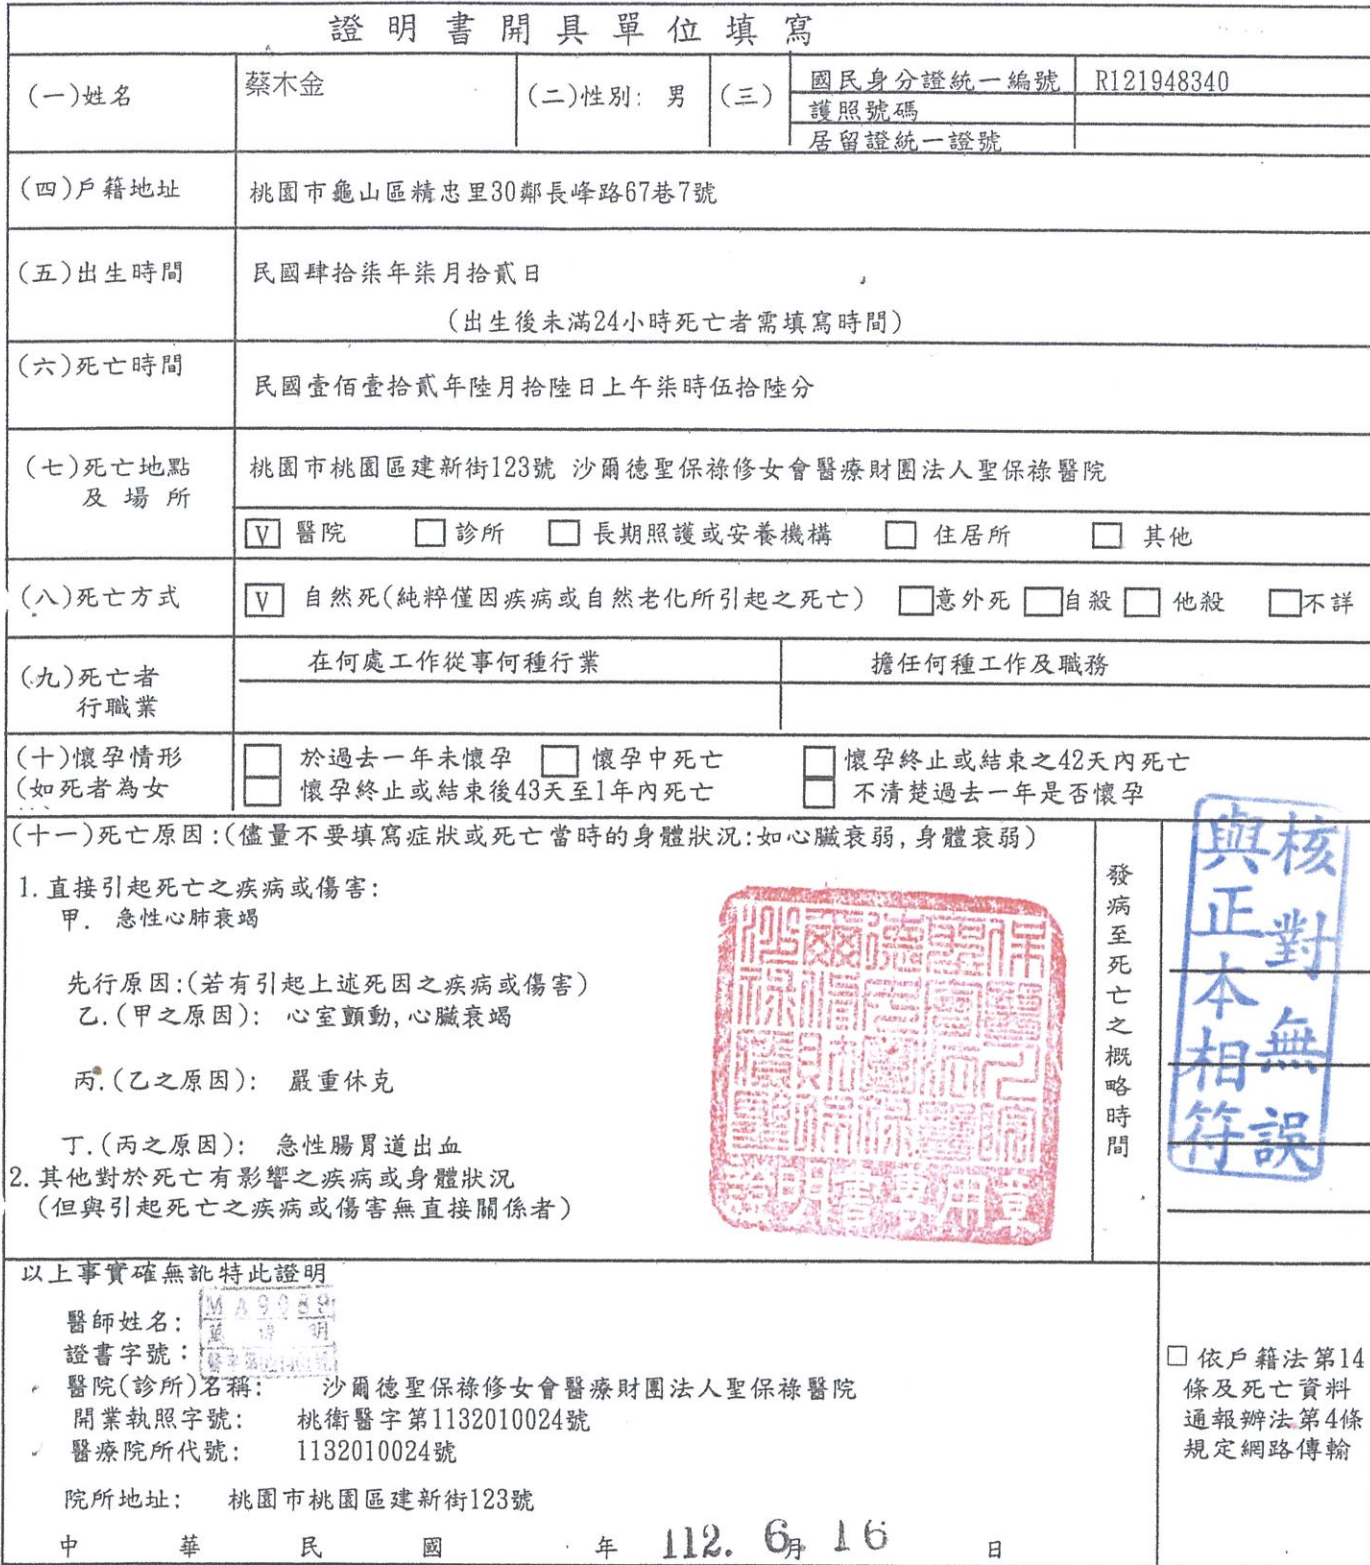 證明書開具單位填寫
(一)姓名 蔡木金 (二)性別: 男 (三) 國民身分證統一編號 R121948340
護照號碼
居留證統一證號
(四)戶籍地址 桃園市龜山區精忠里30鄰長峰路67巷7號
(五)出生時間 民國肆拾柒年柒月拾貳日
(出生後未滿24小時死亡者需填寫時間)
(六)死亡時間 民國壹佰壹拾貳年陸月拾陸日上午柒時伍拾陸分
(七)死亡地點 桃園市桃園區建新街123號 沙爾德聖保祿修女會醫療財團法人聖保祿醫院
及 場 所
V 醫院 □ 診所 □ 長期照護或安養機構 □ 住居所 □ 其他
(八)死亡方式 V 自然死(純粹僅因疾病或自然老化所引起之死亡) □意外死 □自殺 □ 他殺 □不詳
(九)死亡者 在何處工作從事何種行業 擔任何種工作及職務
行職業
(十)懷孕情形 □ 於過去一年未懷孕 □ 懷孕中死亡 □ 懷孕終止或結束之42天內死亡
(如死者為女 □ 懷孕終止或結束後43天至1年內死亡 □ 不清楚過去一年是否懷孕
(十一)死亡原因:(儘量不要填寫症狀或死亡當時的身體狀況:如心臟衰弱,身體衰弱)
1.直接引起死亡之疾病或傷害:
甲. 急性心肺衰竭
先行原因:(若有引起上述死因之疾病或傷害)
乙.(甲之原因): 心室顫動,心臟衰竭
丙.(乙之原因): 嚴重休克
丁.(丙之原因): 急性腸胃道出血
2.其他對於死亡有影響之疾病或身體狀況
(但與引起死亡之疾病或傷害無直接關係者)
發病至死亡之概略時間
核對無誤
與正本相符
證明書專用章
以上事實確無訛特此證明
醫師姓名:
MA9089
證書字號:
醫院(診所)名稱: 沙爾德聖保祿修女會醫療財團法人聖保祿醫院
開業執照字號: 桃衛醫字第1132010024號
醫療院所代號: 1132010024號
院所地址: 桃園市桃園區建新街123號
中 華 民 國 年 112. 6月 16 日
□ 依戶籍法第14
條及死亡資料
通報辦法第4條
規定網路傳輸